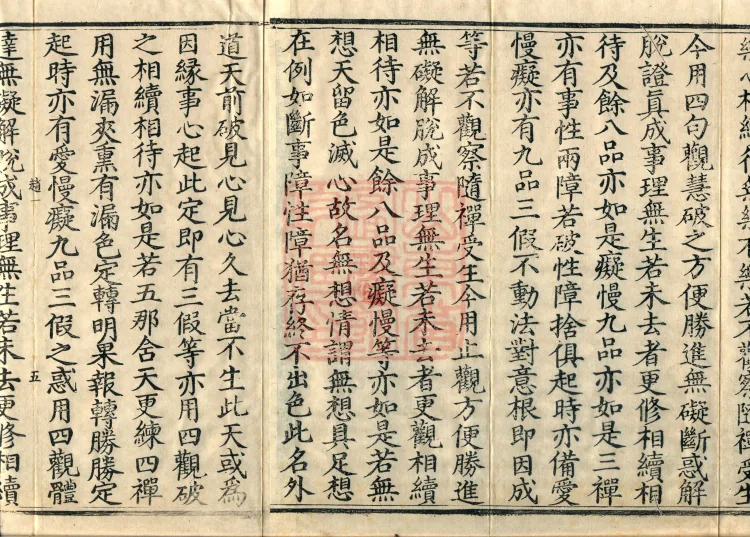 今用四句觀慧破之方便勝進無礙斷惑解
脫證真成事理無生若未去者更修相續相
待及餘八品亦如是癡慢九品亦如是三禪
亦有事性兩障若破性障捨俱起時亦備愛
慢癡亦有九品三假不動法對意根即因成
等若不觀察隨禪受生今用止觀方便勝進
無礙解脫成事理無生若未去者更觀相續
相待亦如是餘八品及癡慢等亦如是若無
想天留色滅心故名無想情謂無想具足想
在例如斷事障性障猶存終不出色此名外
道天前破見心見心久去當不生此天或為
因緣事心起此定即有三假等亦用四觀破
之相續相待亦如是若五那含天更練四禪
用無漏夾熏有漏色定轉明果報轉勝勝定
起時亦有愛慢癡九品三假之惑用四觀體
趙一
五
達無礙解脫成事理無生若未去更修相續